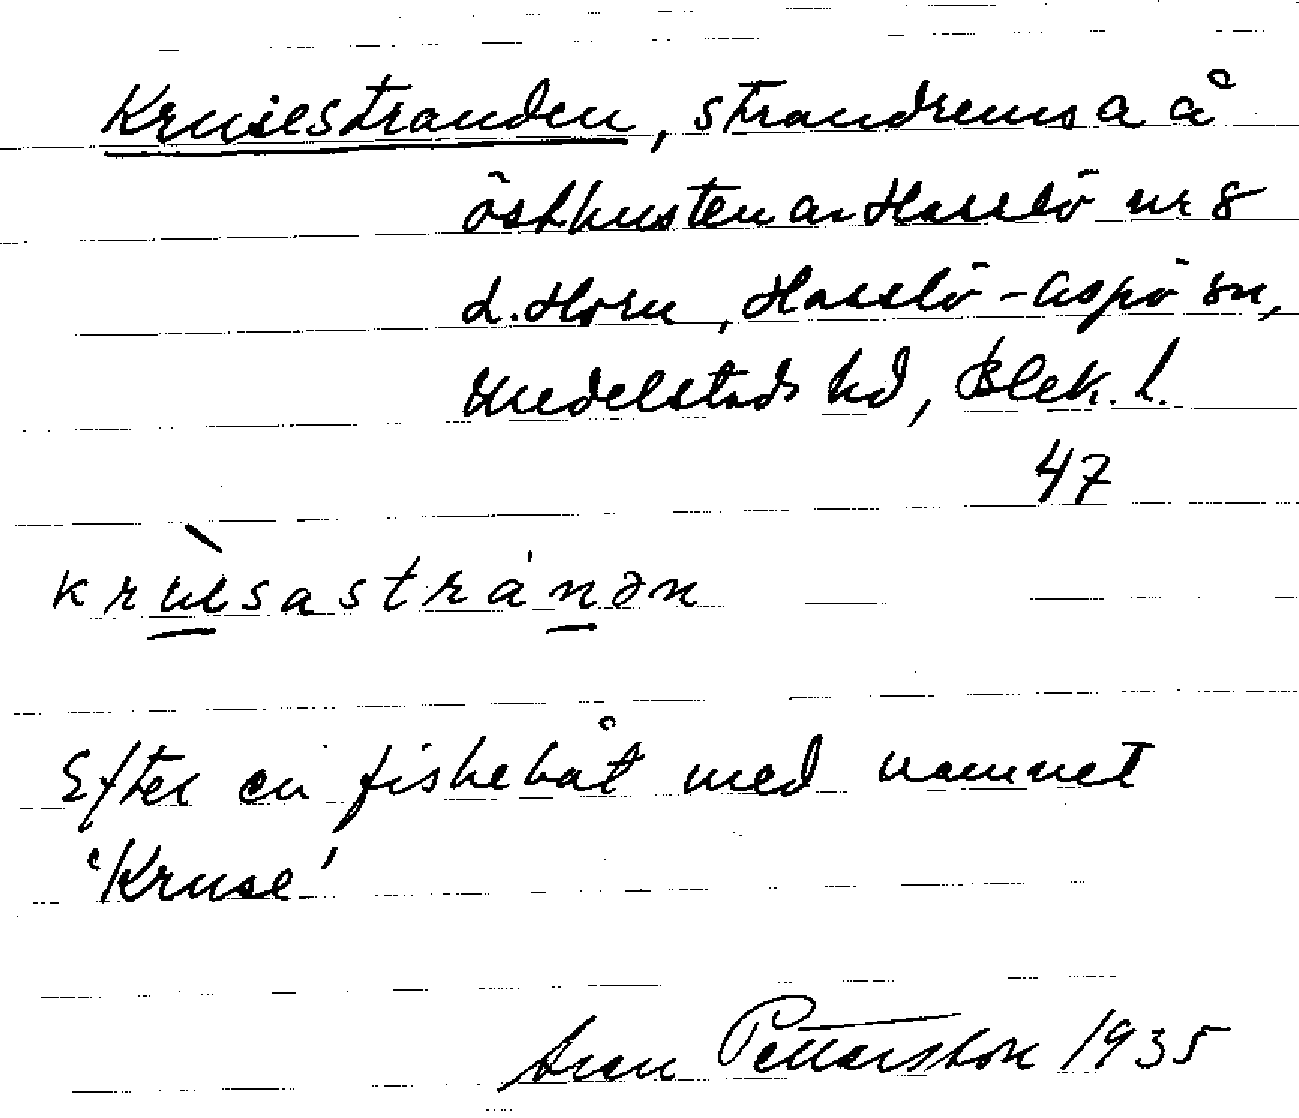 Krusestranden, strandremsa å
östkusten av Hasslö nr 8
L. Horn, Hasslö-Aspö sn,
Medelstads hd, Blek. l.
47
krùsastránən
Efter en fiskebåt med namnet
'Kruse'
Pettersson 1935